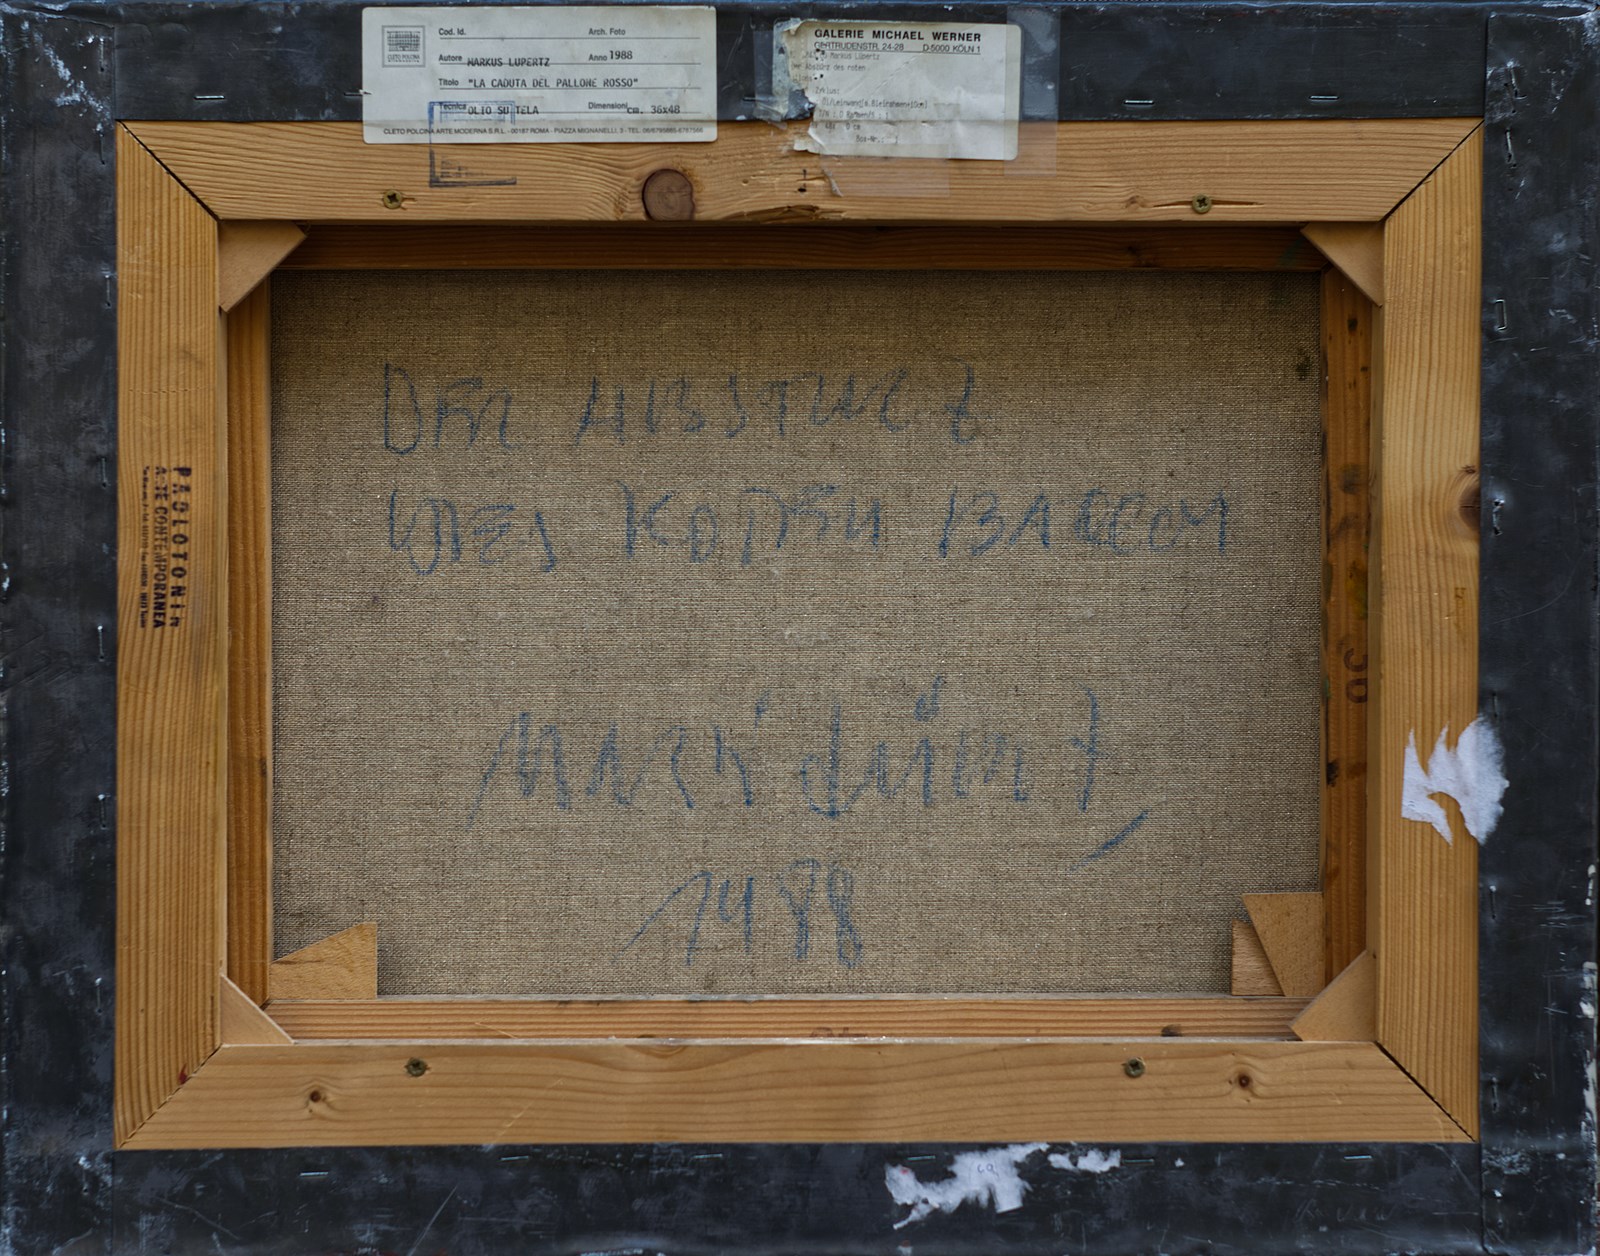 CLETO POLCINA
Cod. Id. Arch. Foto
Autore MARKUS LUPERTZ Anno 1988
Titolo "LA CADUTA DEL PALLONE ROSSO"
Tecnica OLIO SU TELA Dimensioni cm. 36x48
CLETO POLCINA ARTE MODERNA S.R.L. - 00187 ROMA - PIAZZA MIGNANELLI, 3 - TEL.
GALERIE MICHAEL WERNER
GERTRUDENSTR. 24-28 D-5000 KÖLN 1
Markus Lüpertz
Absturz des roten
Zyklus:
DER ABSTURZ
DES ROTEN BALLON
MARKUS
1988
PAOLO TONIN
ARTE CONTEMPORANEA
30